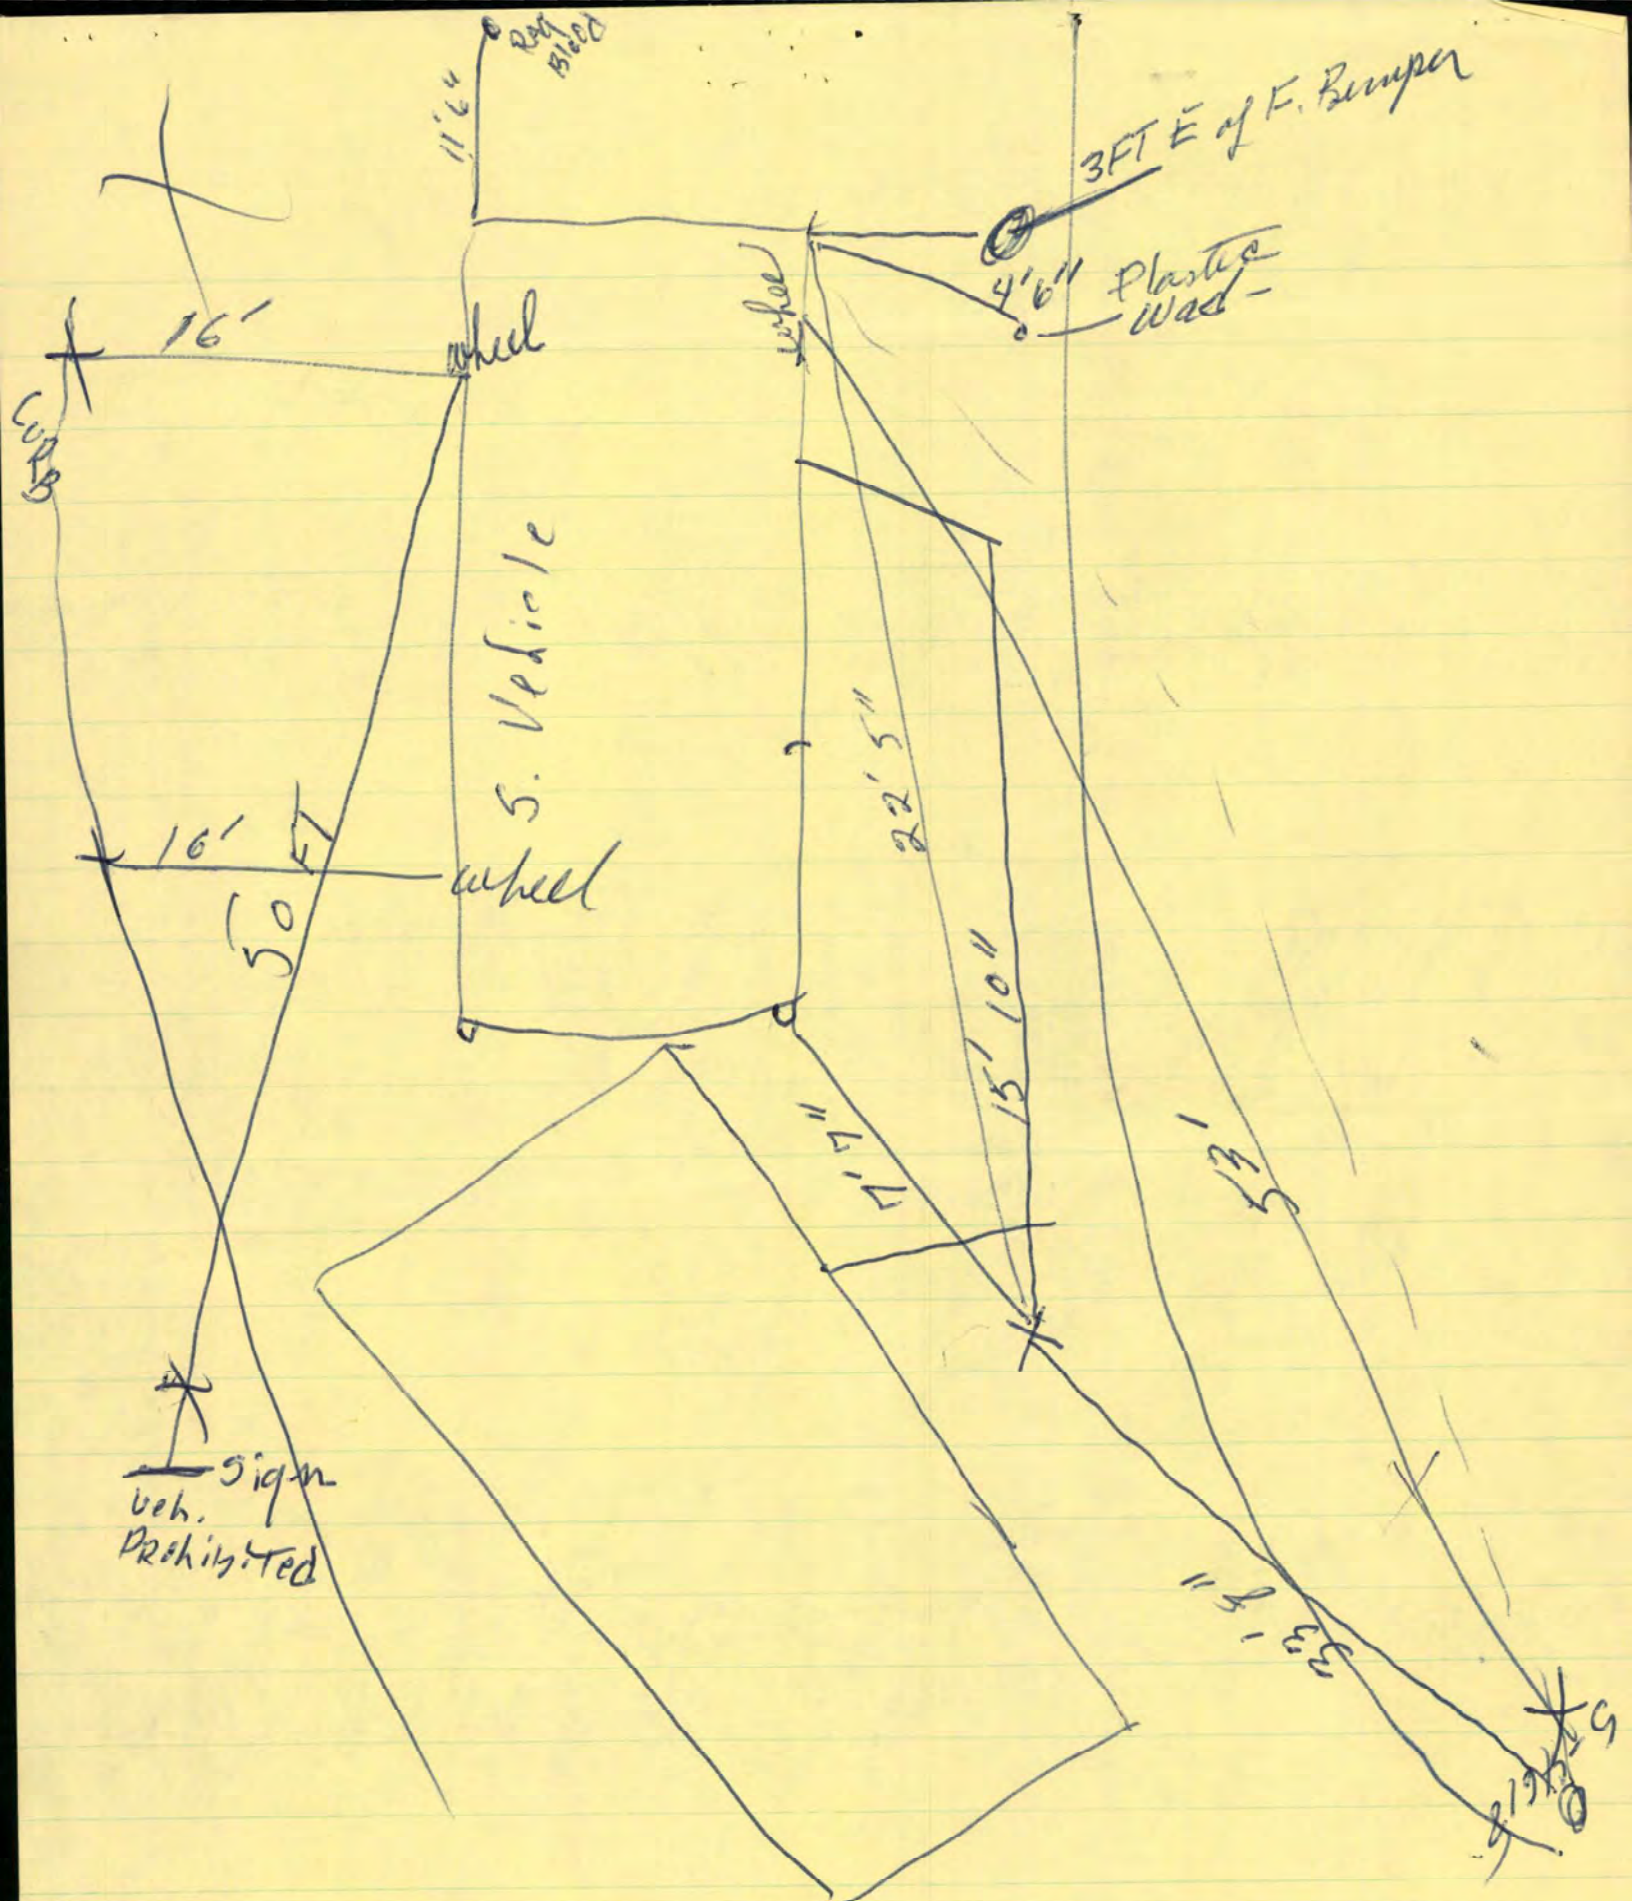 Rag
Blood
11'6"
3FT E of F. Bumper
4'6" Plastic
Wad -
16'
wheel
wheel
CURB
S. Vehicle
22' 5"
16'
wheel
50 FT
15' 10"
7' 7"
53'
Sign
Veh.
Prohibited
33' 8"